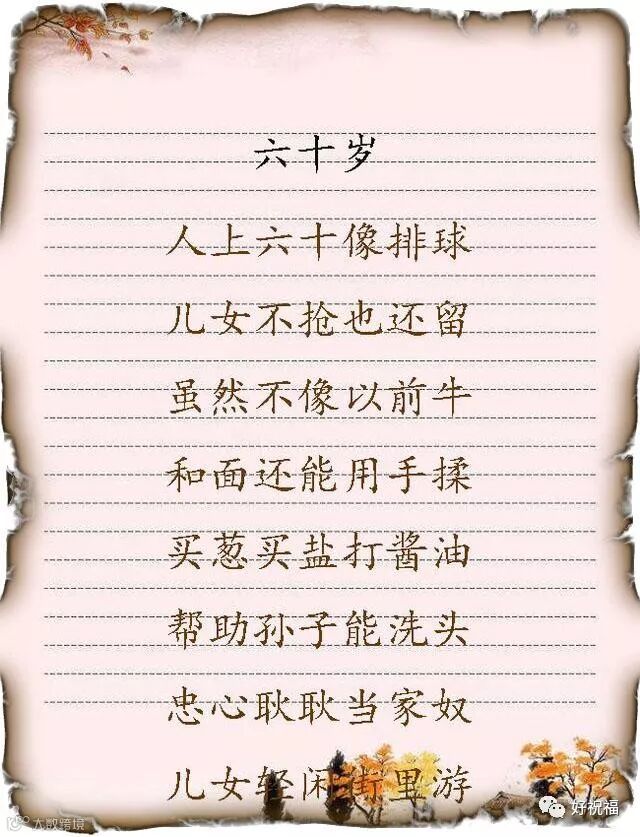 六十岁
人上六十像排球
儿女不抢也还留
虽然不像以前牛
和面还能用手揉
买葱买盐打酱油
帮助孙子能洗头
忠心耿耿当家奴
儿女轻闲街里游
好祝福
大数跨境